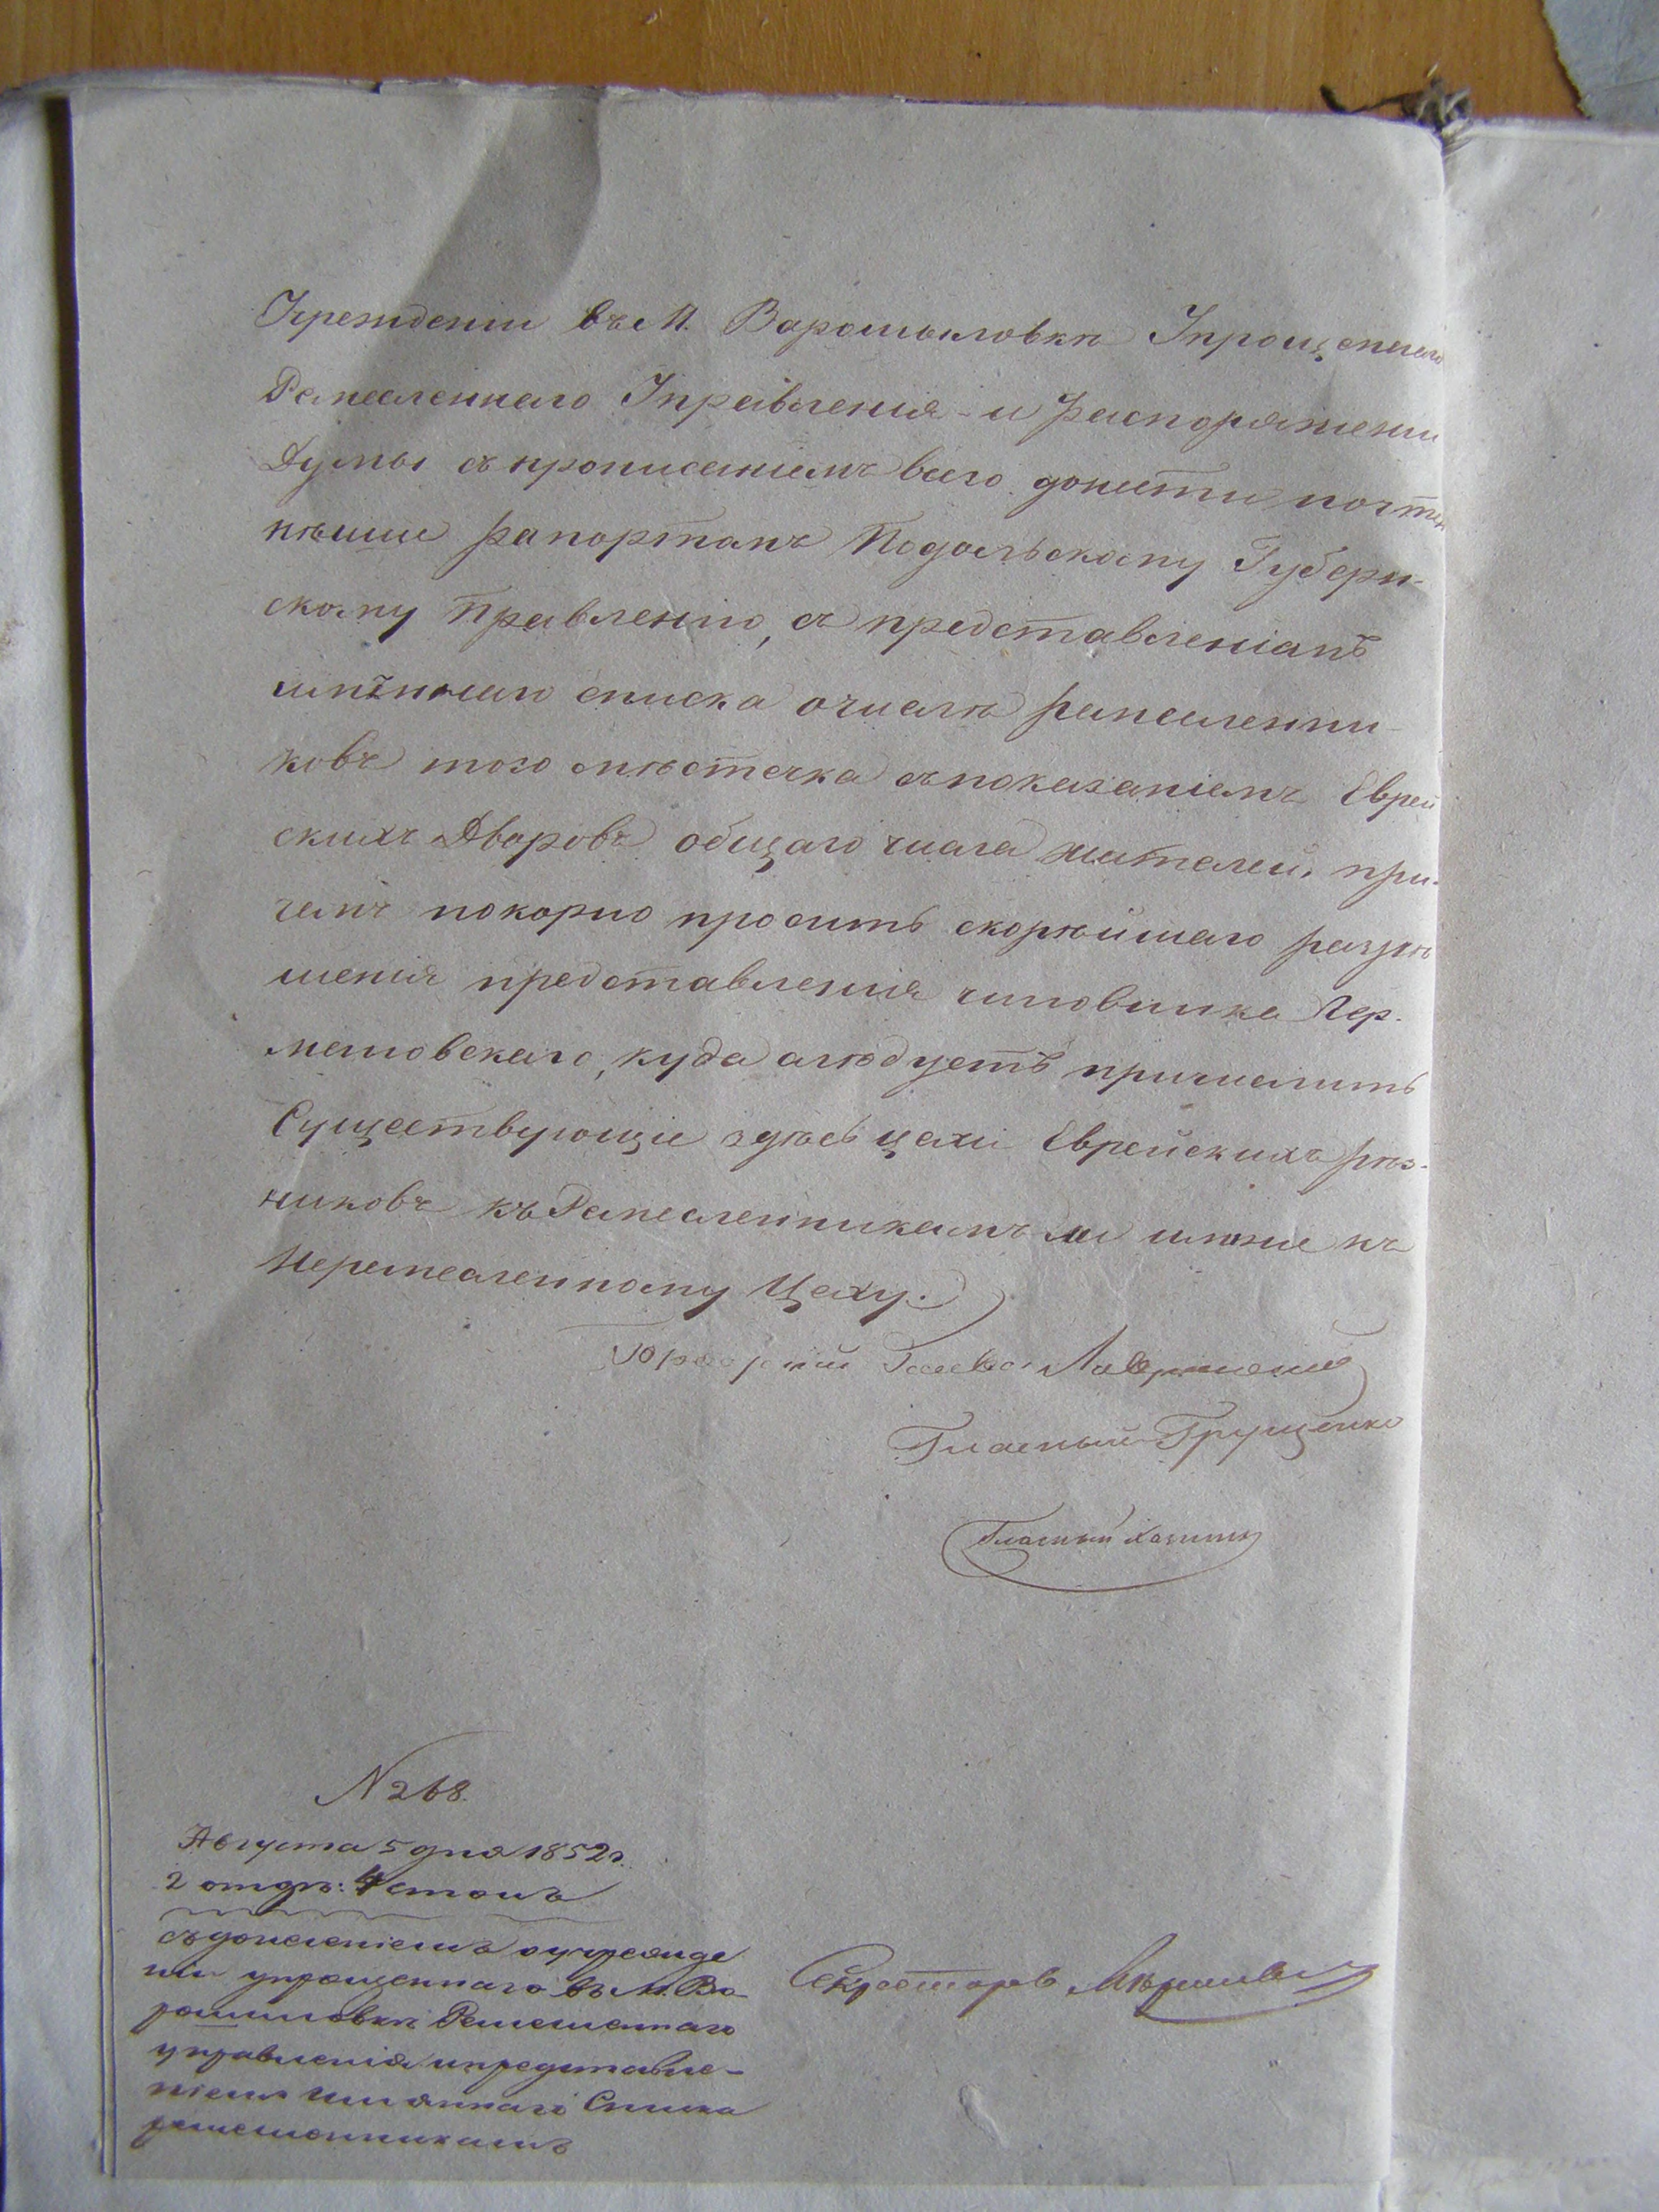 Учрежденіи въ М. Варошиловки Упрощеннаго
Ремесленнаго Управленія и распоряженіи
Думы съ прописаніемъ всего донести почтен
нѣише рапортомъ Подольскому Губерн-
скому Правленію, съ представленіемъ
имѣннаго списка очислѣ ремесленни-
ковъ того мѣстечка съ показаніемъ Еврей
скихъ Дворовъ общаго числа жителей, при-
чемъ покорно просить скорѣйшаго разрѣ
шенія представленія чиновника Лер-
монтовскаго, куда слѣдуетъ причислить
Существующіе здѣсь цехи Еврейскихъ рѣз-
никовъ къ Ремесленникамъ ли или же къ
Неремесленному Цеху.
Городской Голова
Гласный Грущенко
Гласный
N 268.
Августа 5 дня 1852 г.
2 отдѣ: 4 столъ
съ донесеніемъ о учрежде
ніи упрощеннаго въ М. Во-
рошиловки Ремесленнаго
управленія и представле-
ніемъ имяннаго Списка
ремесленникамъ
Секретарь